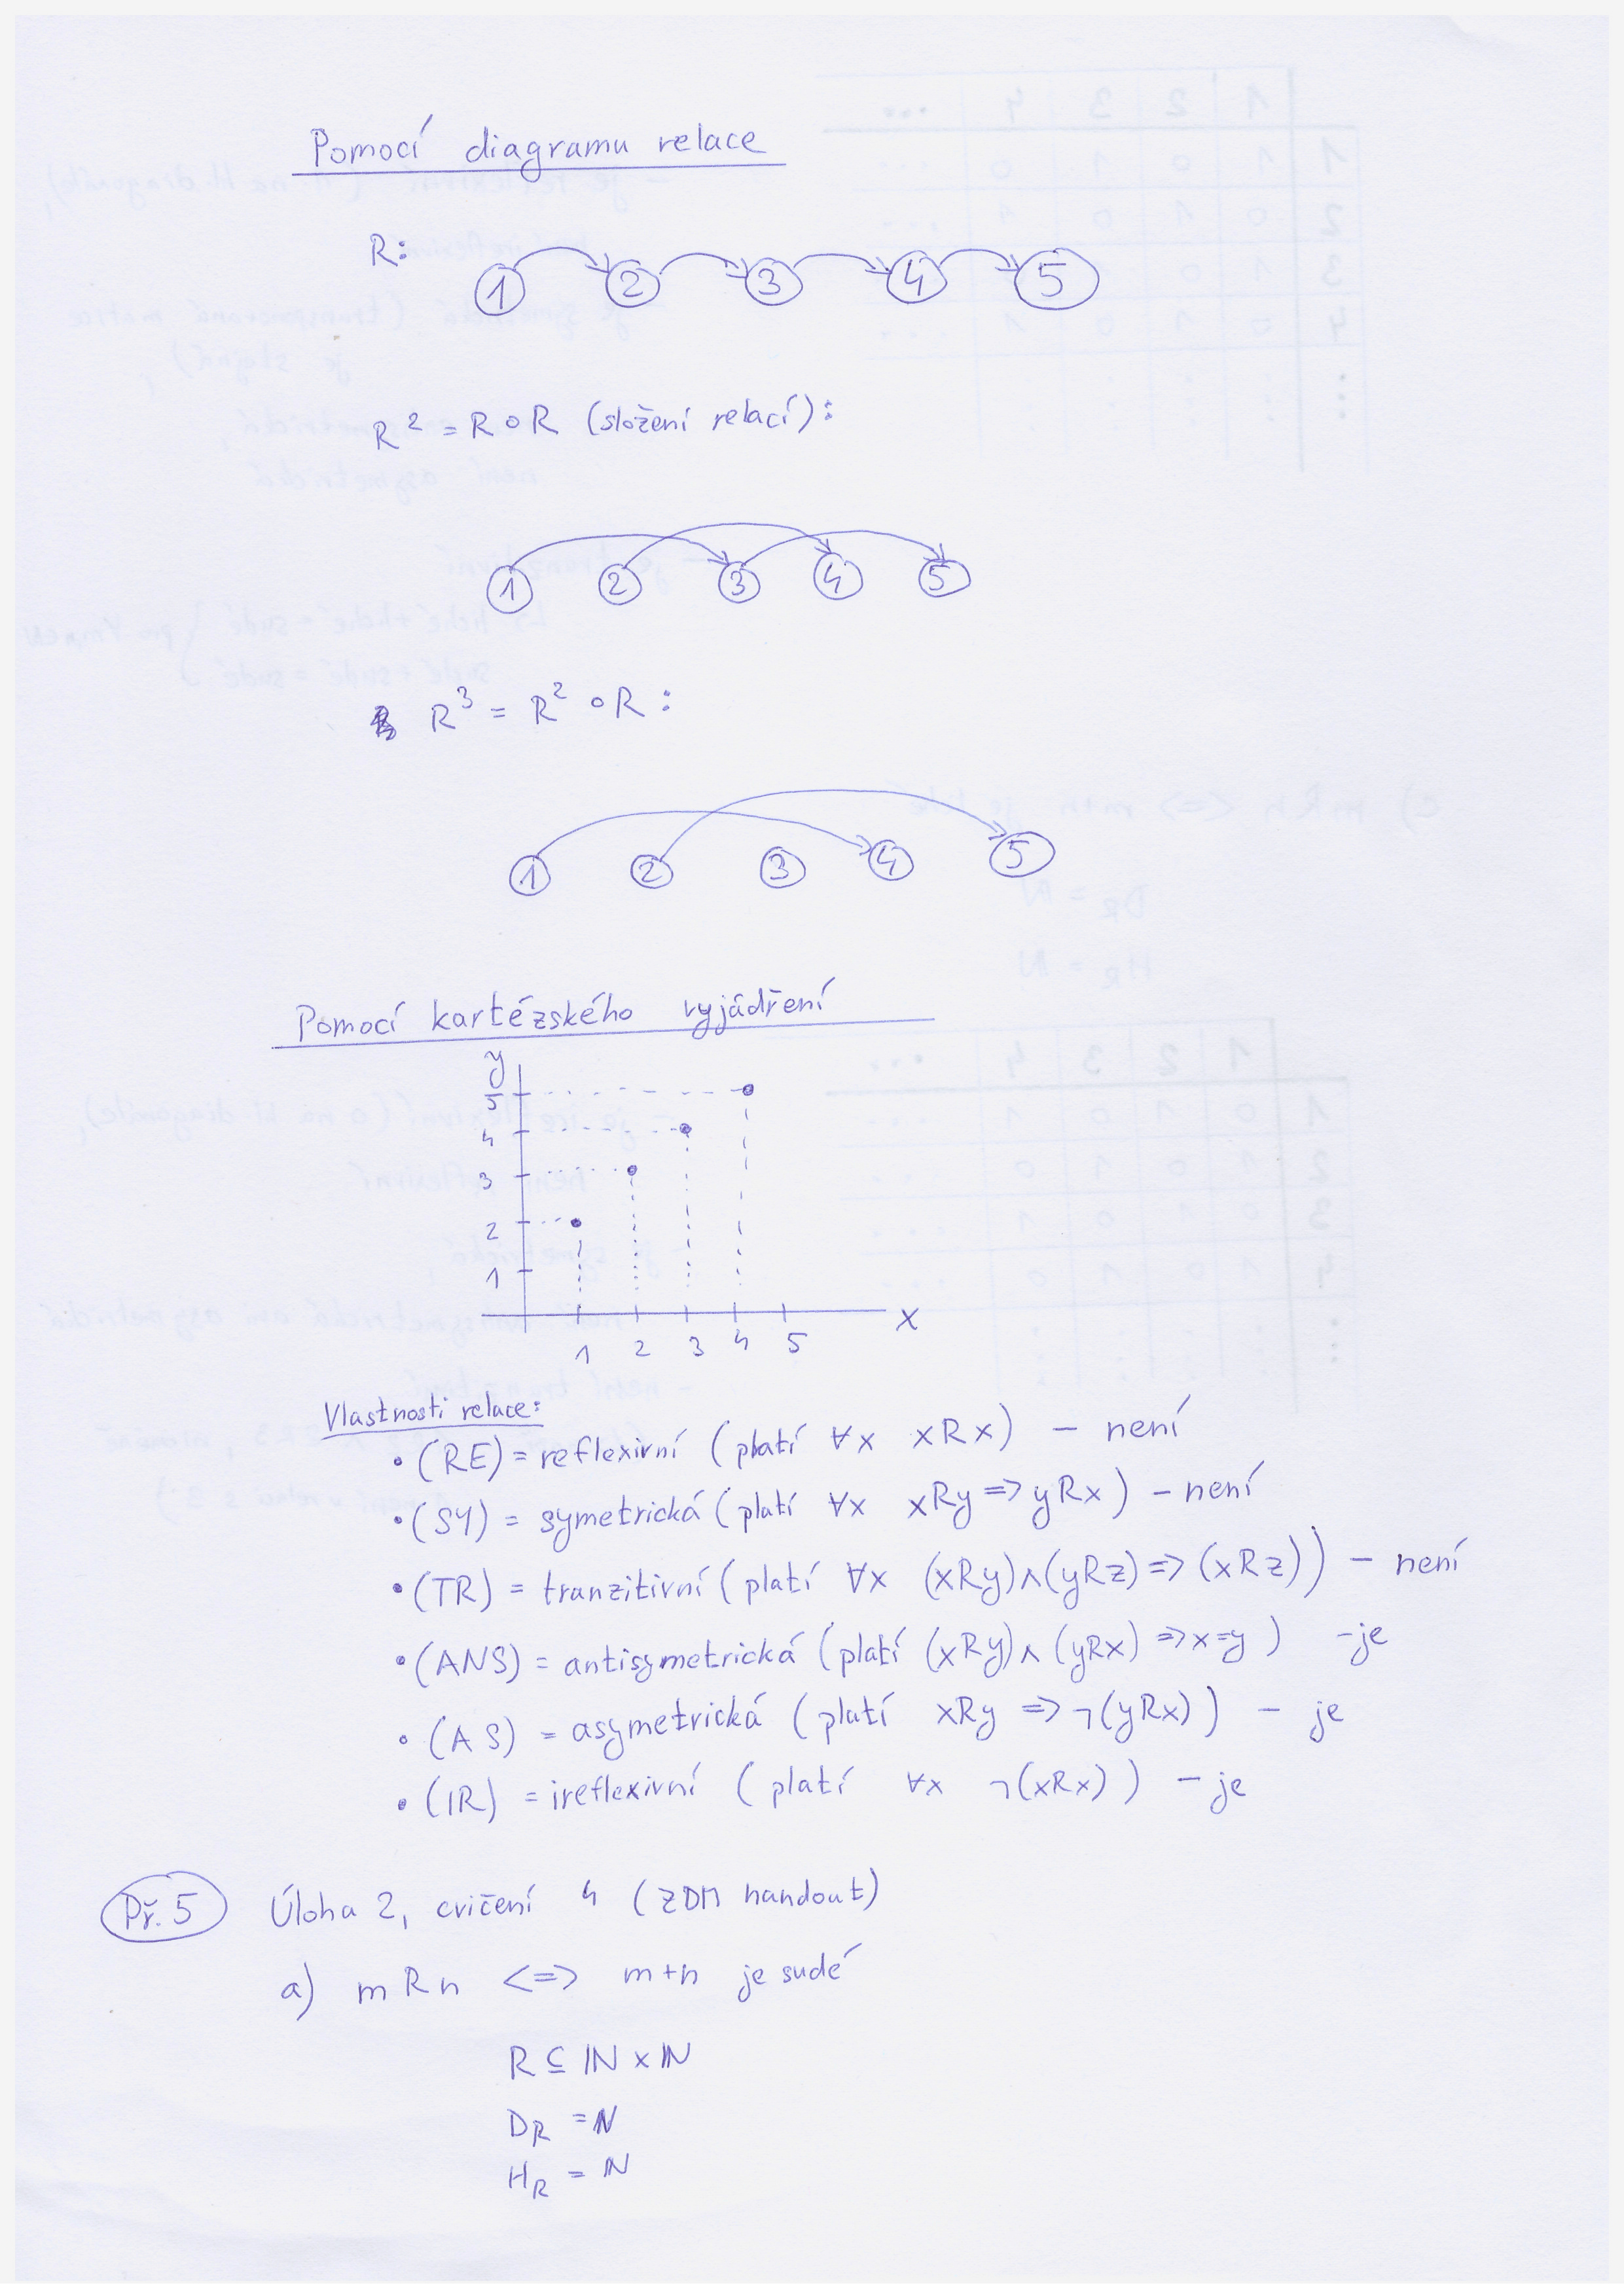 Pomocí diagramu relace
R:
1 2 3 4 5
R² = R ∘ R (složení relací):
1 2 3 4 5
R³ = R² ∘ R :
1 2 3 4 5
Pomocí kartézského vyjádření
y
5
4
3
2
1
x
1 2 3 4 5
Vlastnosti relace:
• (RE) = reflexivní (platí ∀x xRx) – není
• (SY) = symetrická (platí ∀x xRy => yRx) – není
• (TR) = tranzitivní (platí ∀x (xRy)∧(yRz) => (xRz)) – není
• (ANS) = antisymetrická (platí (xRy)∧(yRx) => x=y) – je
• (AS) = asymetrická (platí xRy => ¬(yRx)) – je
• (IR) = ireflexivní (platí ∀x ¬(xRx)) – je
Př. 5 Úloha 2, cvičení 4 (ZDM handout)
a) m R n <=> m+n je sudé
R ⊆ ℕ x ℕ
D_R = ℕ
H_R = ℕ